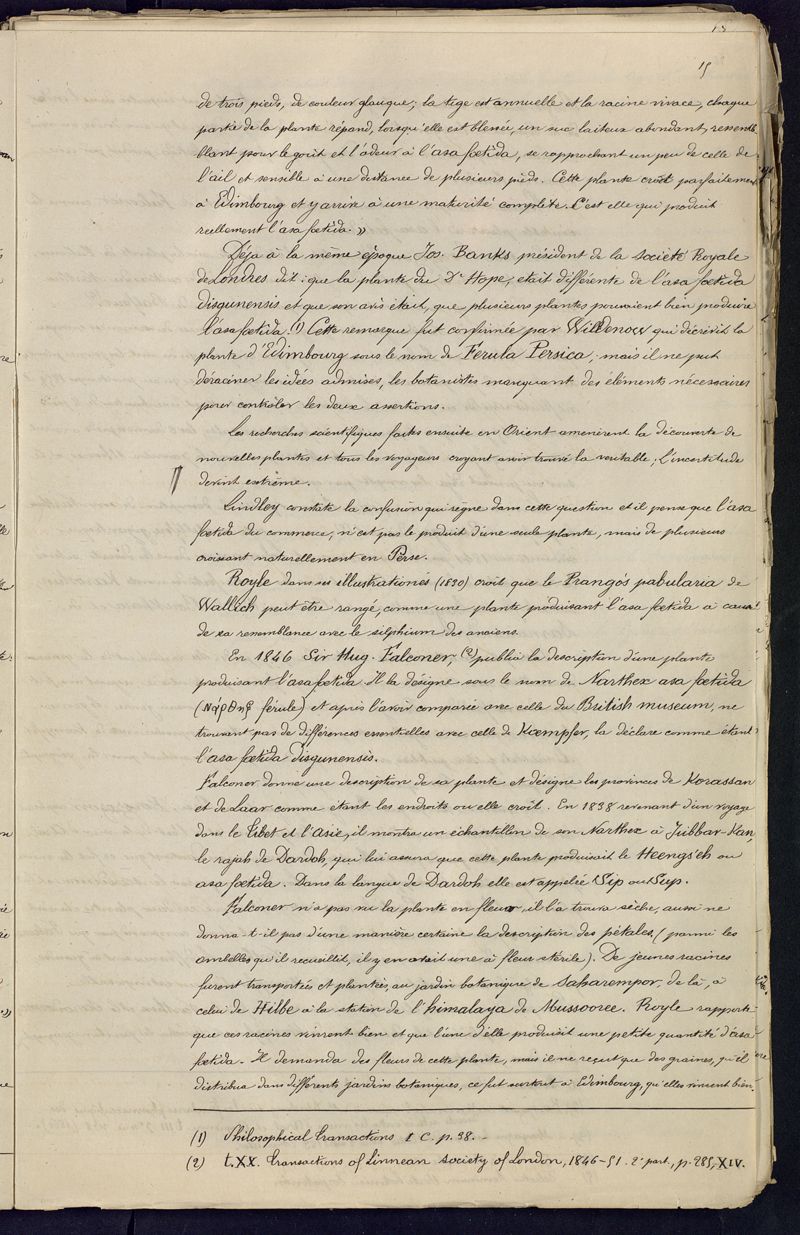 15
de trois pieds, de couleur glauque; la tige est annuelle et la racine vivace, chaque
partie de la plante répand, lorsqu'elle est blessée, un suc laiteux abondant, ressem
blant pour le goût et l'odeur à l'asa fœtida, se rapprochant un peu de celle de
l'ail et sensible à une distance de plusieurs pieds. Cette plante croît parfaitement
à Edimbourg et y arrive à une maturité complète. C'est elle qui produit
réellement l'asa fœtida.»
Déja à la même époque Jos. Banks président de la société Royale
de Londres dit: que la plante du Dr Hope, était différente de l'asa fœtida
disgunensis et que son avis était, que plusieurs plantes pouvaient bien produire
l'asa fœtida.(1) Cette remarque fut confirmée par Willdenow qui décrivit la
plante d'Edimbourg sous le nom de Ferula Persica; mais il ne put
déraciner les idées admises, les botanistes manquant des éléments nécessaires
pour contrôler les deux assertions.
Les recherches scientifiques faites ensuite en Orient amenèrent la découverte de
nouvelles plantes et tous les voyageurs croyant avoir trouvé la véritable; L'incertitude
devint extrême.
Lindley constate la confusion qui règne dans cette question et il pense que l'asa
fœtida du commerce, n'est pas le produit d'une seule plante, mais de plusieurs
croissant naturellement en Perse.
Royle dans ses illustrationes (1830) croit que le Prangos pabularia de
Wallich peut être rangé, comme une plante produisant l'asa fœtida à cause
de sa ressemblance avec le silphium des anciens.
En 1846 Sir Hug. Falconer, (2) publia la description d'une plante
produisant l'asa fœtida. Il la désigne sous le nom de Narthex asa fœtida
(νάρθηξ férule) et après l'avoir comparée avec celle du British museum, ne
trouvant pas de différences essentielles avec celle de Kœmpfer, la déclare comme étant
l'asa fœtida disgunensis.
Falconer donne une description de sa plante et désigne les provinces de Korassan
et de Laar comme étant les endroits ou elle croît. En 1838 revenant d'un voyage
dans le Tibet et l'Asie, il montra un échantillon de son Narthex à Juibbar-Kan,
le rajah de Dardoh, qui lui assura que cette plante produisait le Heengs'eh ou
asa fœtida. Dans la langue de Dardoh elle est appelée Sip ou Sup.
Falconer n'a pas vu la plante en fleur, il l'a trouva sèche, aussi ne
donna-t-il pas d'une manière certaine la description des pétales, (parmi les
ombelles qu'il recueillit, il y en avait une à fleur stérile). De jeunes racines
furent transportées et plantées, au jardin botanique de Saharempor, de là, à
celui de Hilbe à la station de l'himalaya de Mussooree. Royle rapporte
que ces racines vinrent bien et que l'une d'elle produisit une petite quantité d'asa
fœtida. Il demanda des fleurs de cette plante, mais il ne reçut que des graines, qu'il
distribua dans différents jardins botaniques, ce fut surtout à Edimbourg, qu'elles vinrent bien.
(1) Philosophical Transactions l C. p. 38.
(2) t. XX. Transactions of Linnean society of London, 1846-51. 2e part., p. 285, XIV.